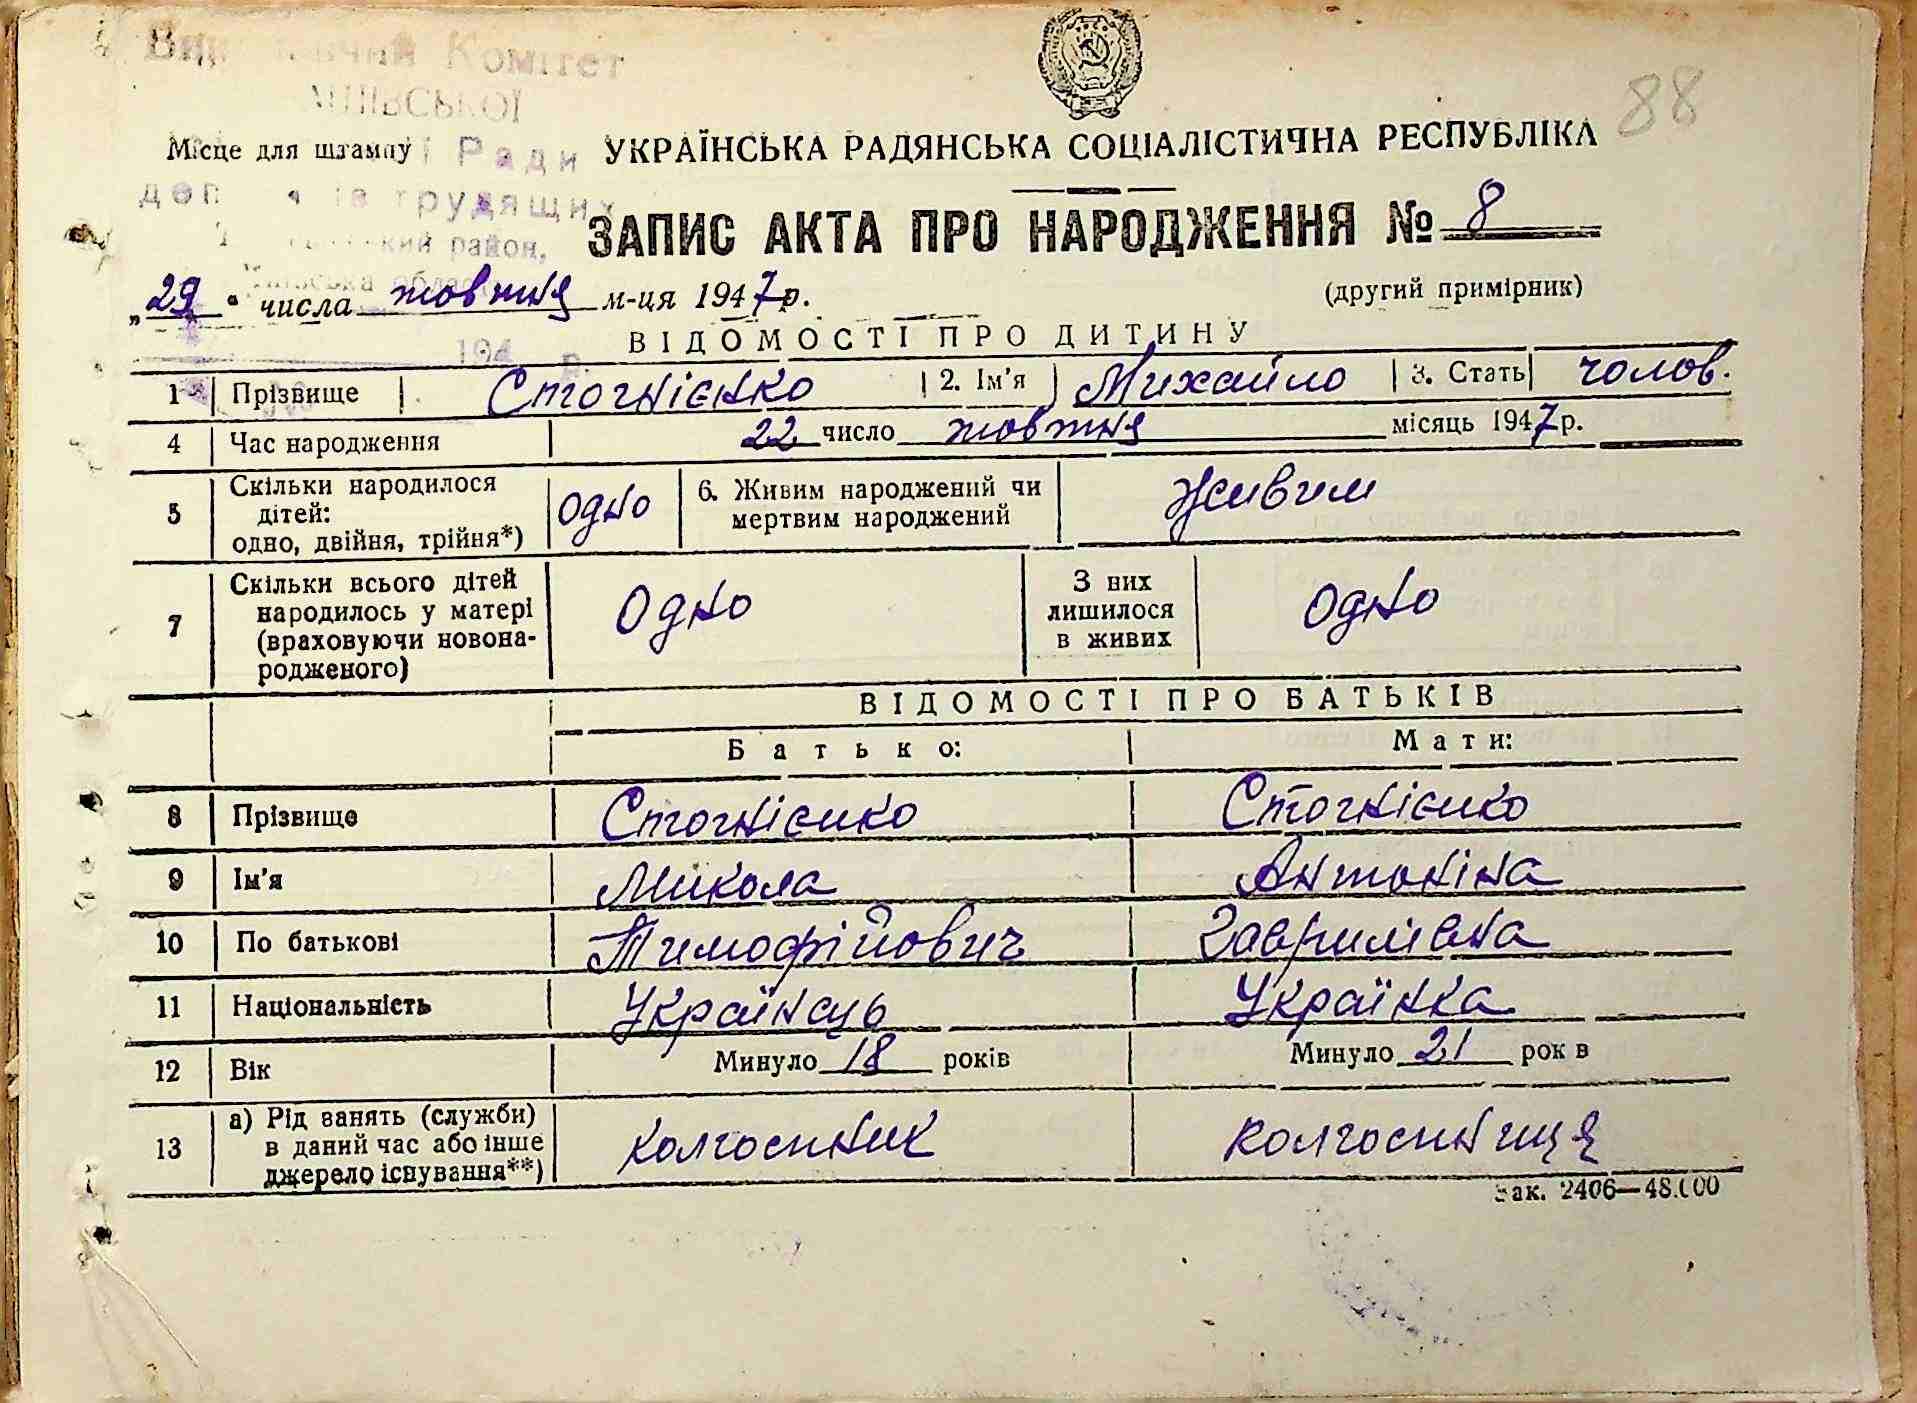 Комітет
88
Місце для штампу Ради УКРАЇНСЬКА РАДЯНСЬКА СОЦІАЛІСТИЧНА РЕСПУБЛІКА
трудящих
район,
ЗАПИС АКТА ПРО НАРОДЖЕННЯ № 8
„29" числа жовтня м-ця 1947 р.
(другий примірник)
ВІДОМОСТІ ПРО ДИТИНУ
194 р.
1 Прізвище Стогнієнко 2. Ім'я Михайло 3. Стать чолов.
4 Час народження 22 число жовтня місяць 1947 р.
5 Скільки народилося дітей: одно, двійня, трійня*) одно 6. Живим народжений чи мертвим народжений Живим
7 Скільки всього дітей народилось у матері (враховуючи новонародженого) Одно З них лишилося в живих Одно
ВІДОМОСТІ ПРО БАТЬКІВ
Батько: Мати:
8 Прізвище Стогнієнко Стогнієнко
9 Ім'я Микола Антоніна
10 По батькові Тимофійович Гаврилівна
11 Національність Українець Українка
12 Вік Минуло 18 років Минуло 21 рок в
13 а) Рід занять (служби) в даний час або інше джерело існування**) колгоспник колгоспниця
Зак. 2406—48.000